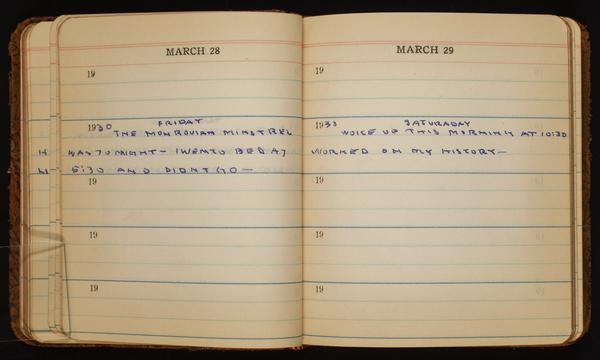 MARCH 28
19
1930 FRIDAY
THE MONROVIAN MINSTREL
WAS TO NIGHT— I WENT TO BED AT
8:30 AND DIDNT GO—
19
19
19
MARCH 29
19
1930 SATURADAY
WOKE UP THIS MORNING AT 10:30
WORKED ON MY HISTORY—
19
19
19